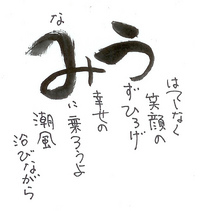 はてしなく
笑顔の
うずひろげ
幸せの
なみに乗ろうよ
潮風
浴びながら